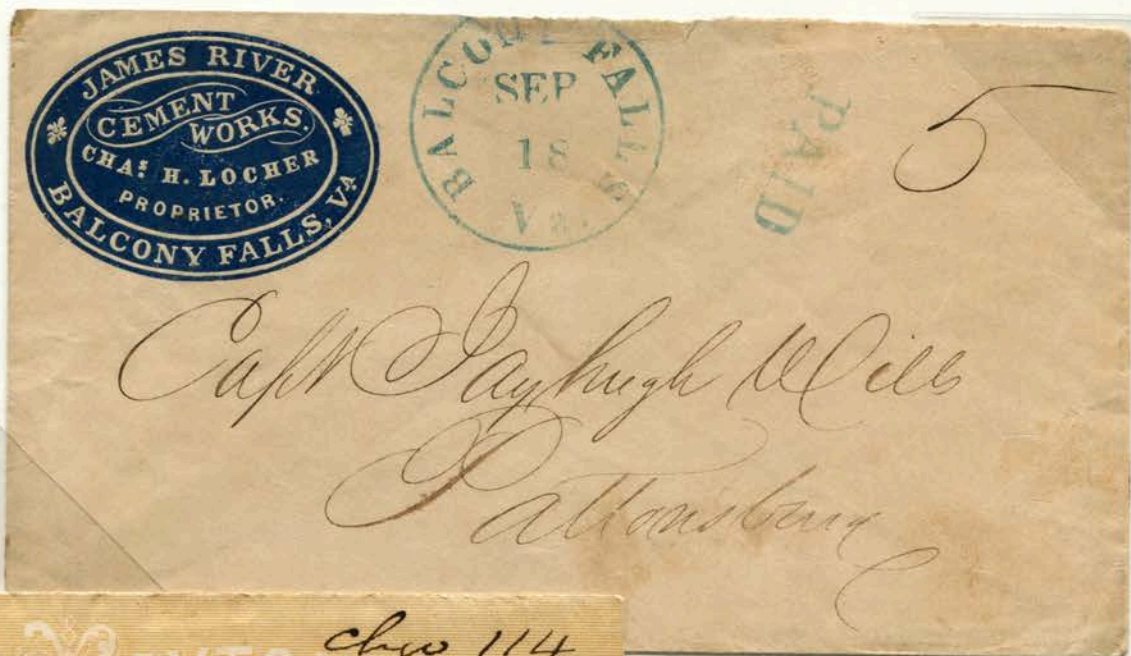 JAMES RIVER
CEMENT
WORKS.
CHAS. H. LOCHER
PROPRIETOR.
BALCONY FALLS, VA
BALCONY FALLS
SEP
18
Va.
PAID
5
Capt Mills
Pattonsburg
114